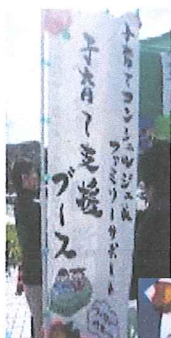 子育てコンシェルジュ&
ファミリーサポート
子育て支援
ブース